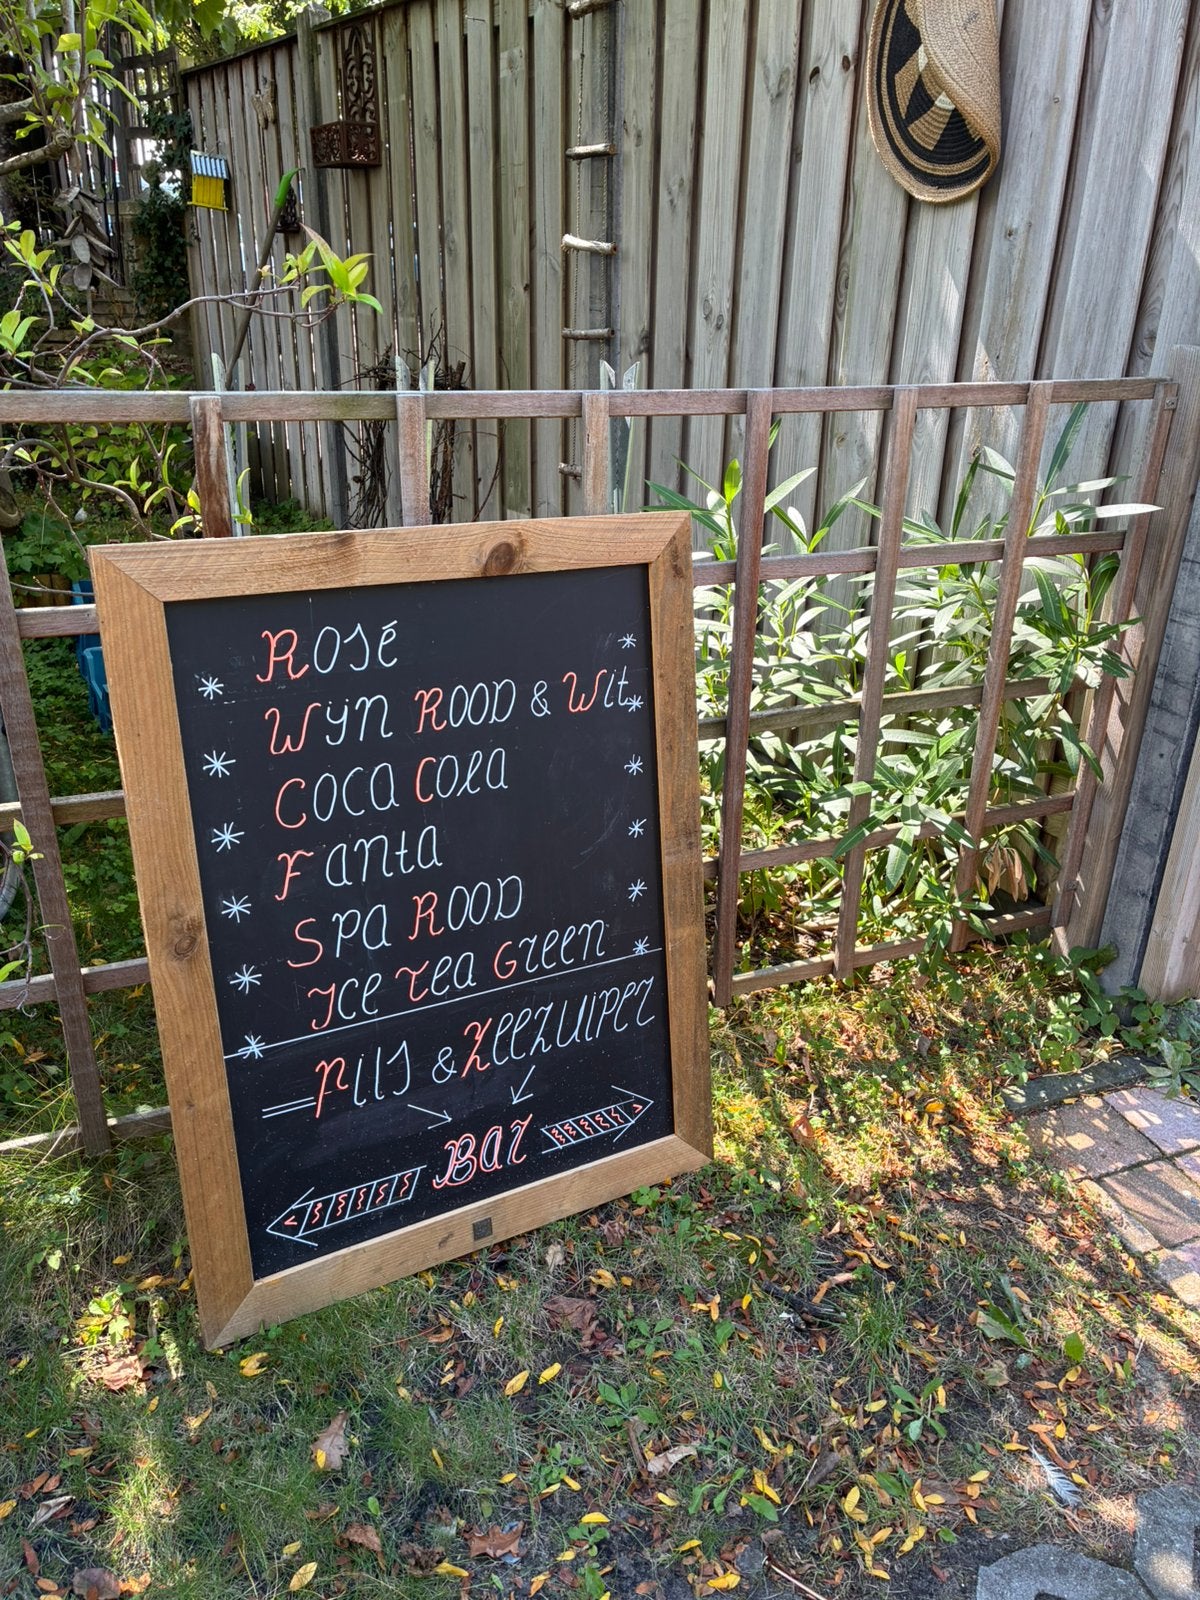 Rosé
Wyn Rood & Wit
Coca Cola
Fanta
Spa Rood
Ice Tea Green
Pils & Zeezuiper
Bar